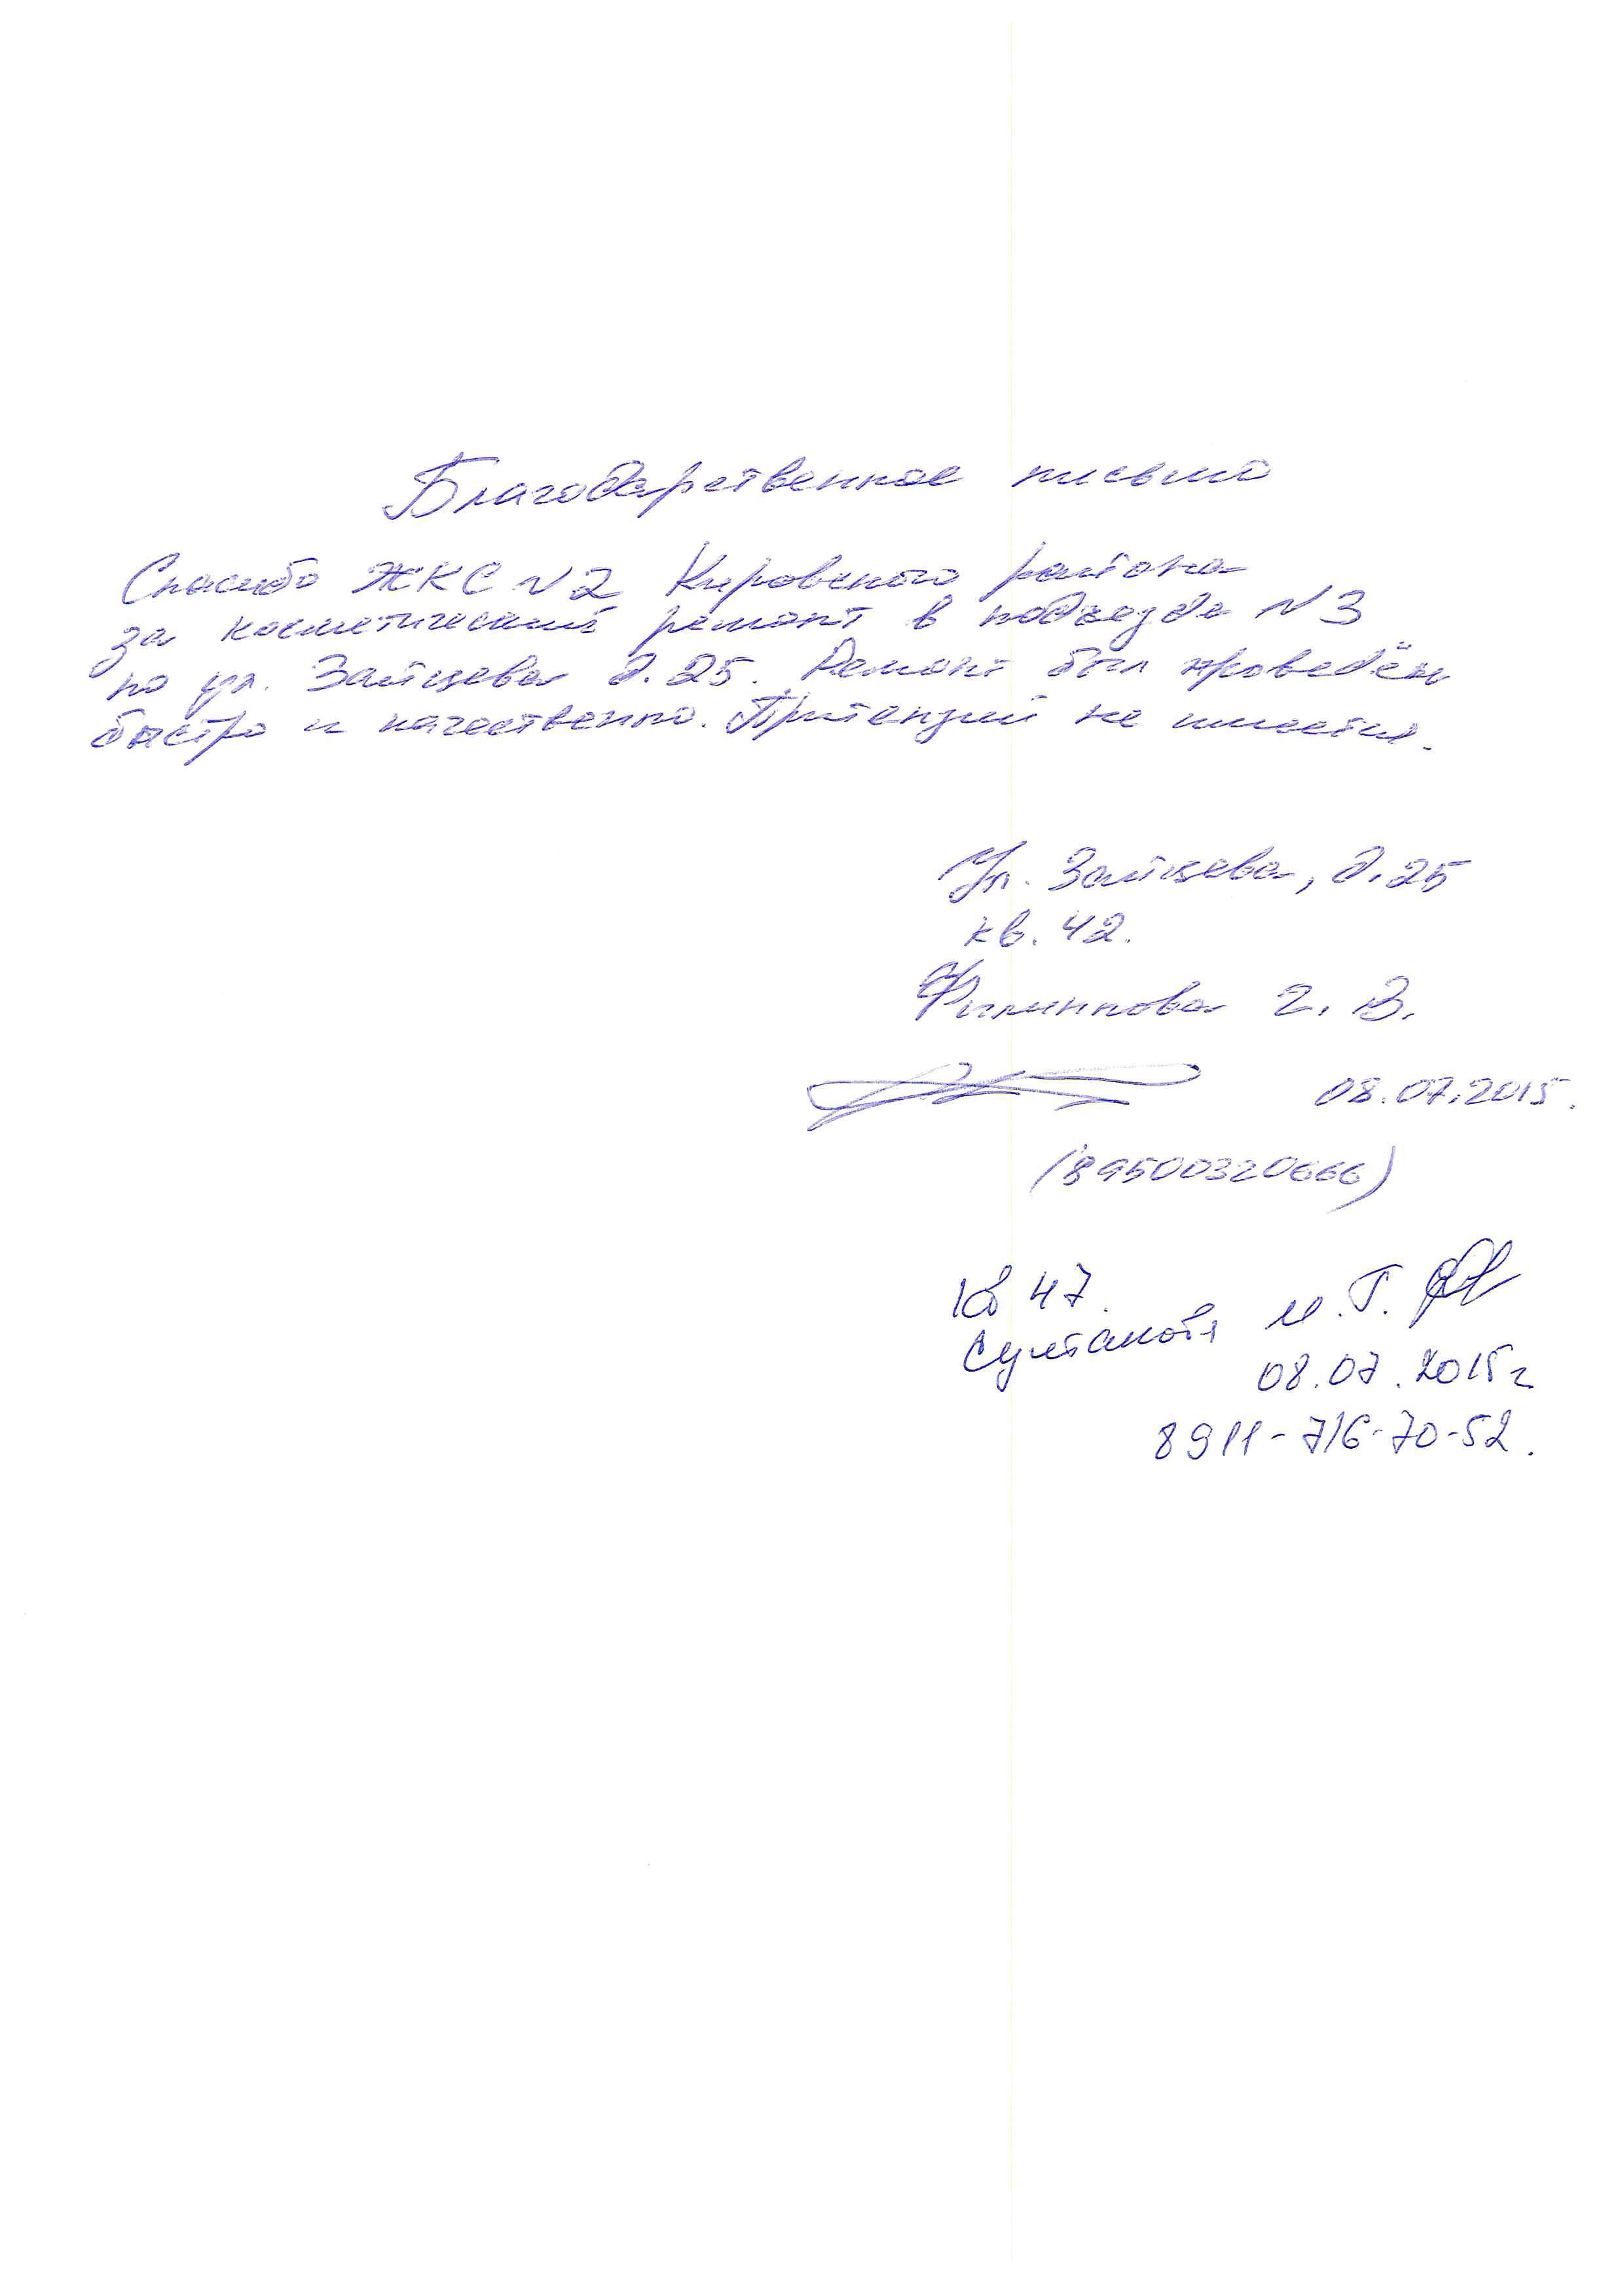 Благодарственное письмо
Спасибо ЖКС N2 Кировского района
за косметический ремонт в подъезде N3
по ул. Зайцева д.25. Ремонт был проведён
быстро и качественно. Притензий не имеется.
Ул. Зайцева, д.25
кв. 42.
Филиппова Г. В.
08.07.2015.
(89500320666)
Кв 47.
Султанова И.Г.
08.07.2015г
8911-716-70-52.